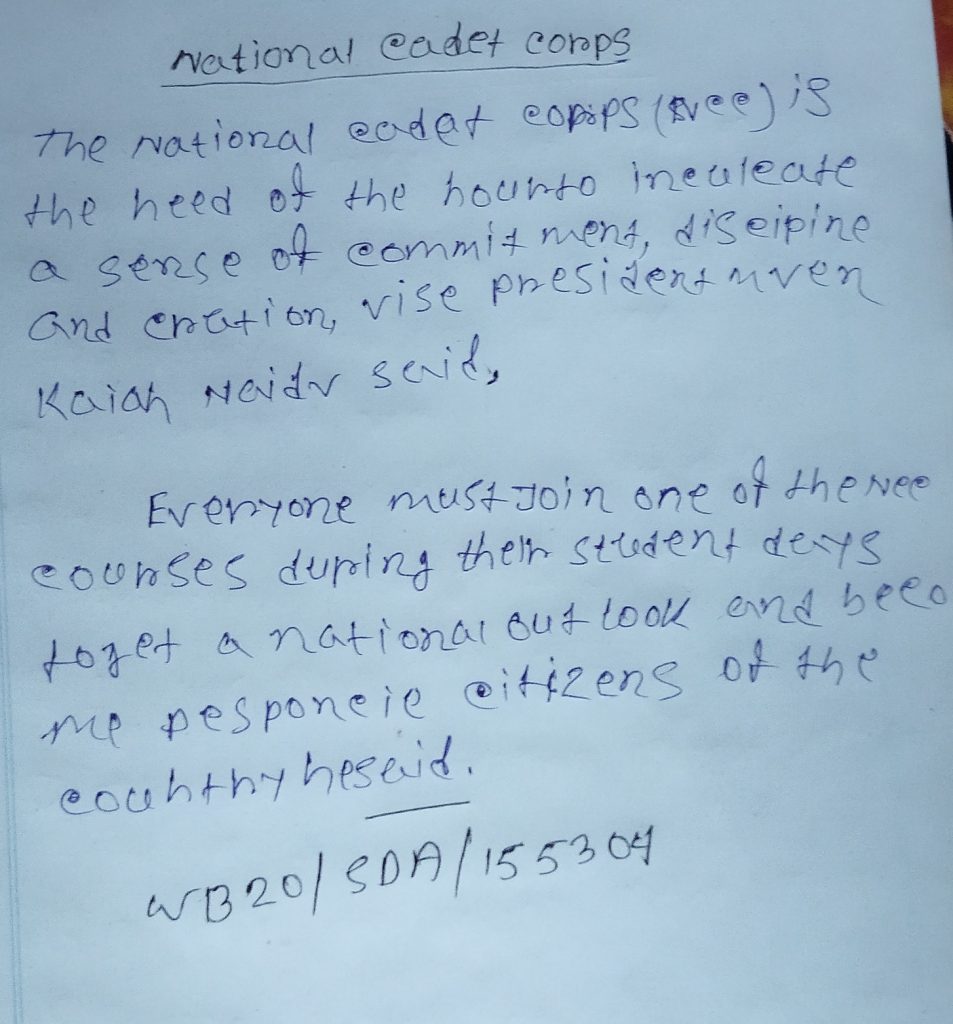 National Cadet corps
The National cadet corps (Ncc) is
the need of the hourto inculcate
a sense of commitment, discipine
and cration, vise president nven
Kaiah Naidu said,
Everyone must Join one of the Ncc
courses during their student days
toget a national out look and beco
me responcie citizens of the
country hesaid.
WB20/SDA/155304